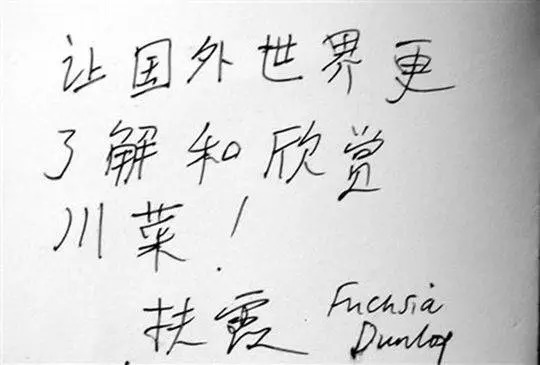 让国外世界更
了解和欣赏
川菜！
扶霞 Fuchsia
Dunlop